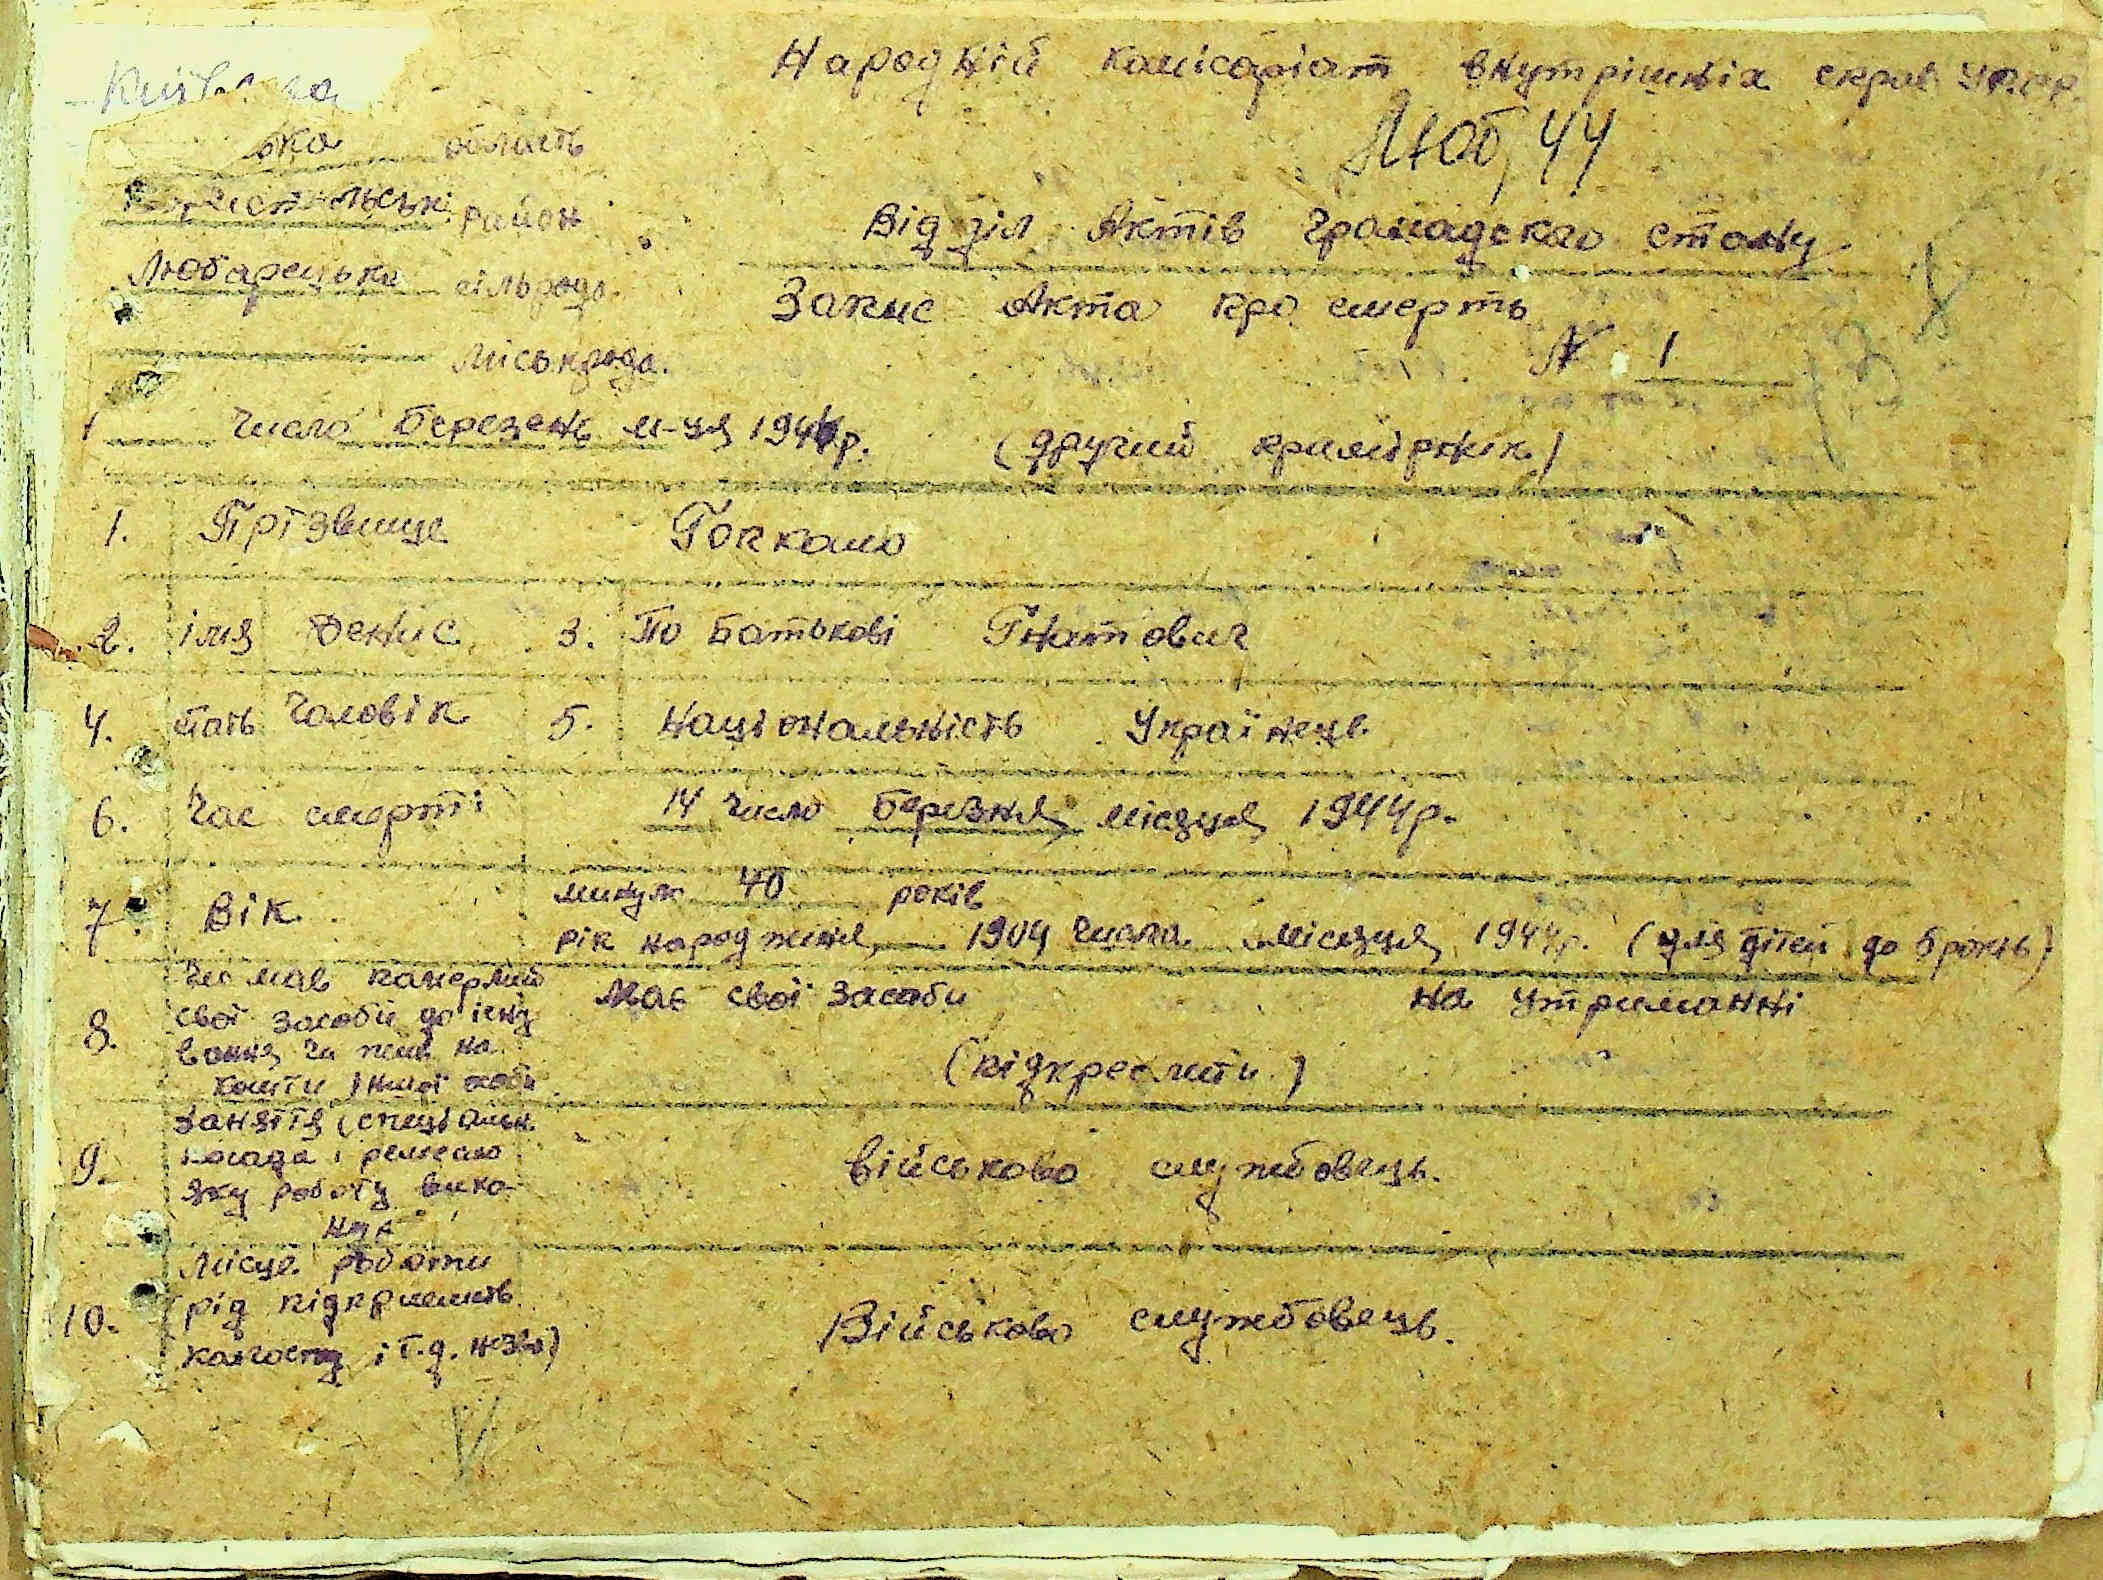 Народній комісаріат внутрішніх справ УРСР.
Київська
ька область
Люб, 44
Бориспільськ. район
Відділ Актів Громадскаго стану.
Любарецька сільрада.
Запис Акта про смерть
міськрада.
N 1
1 число березень м-ця 1944р. (другий примірник)
1. Прізвище Гочкало
2. імя Денис 3. По Батькові Гнатович
4. стать Чоловік 5. Національність Українець.
6. Час смерті 14 число березня місяця 1944р.
7. Вік минуло 40 років
рік народження 1904 числа місяця 1944р. (для дітей до 5 років)
8. Чи мав померлий свої засоби до існу
вання чи жив на
кошти іншої особи
Має свої засоби на утриманні
(підкреслити)
9. Заняття (спеціальн.
посада і ремесло
яку роботу вико-
нує
військово службовець.
10. Місце роботи
(рід підприємств
колгоспу і т.д. назва)
Військово службовець.